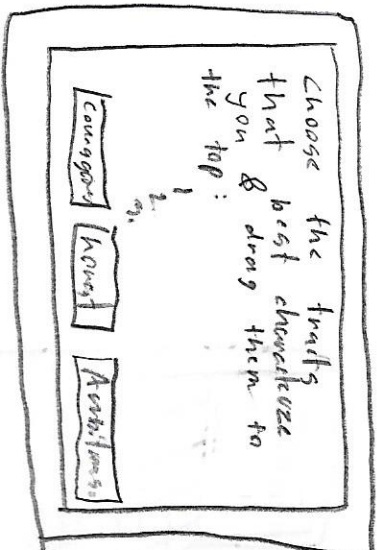 Choose the traits
that best characterize
you & drag them to
the top:
1
2.
3.
honest
Ambitious